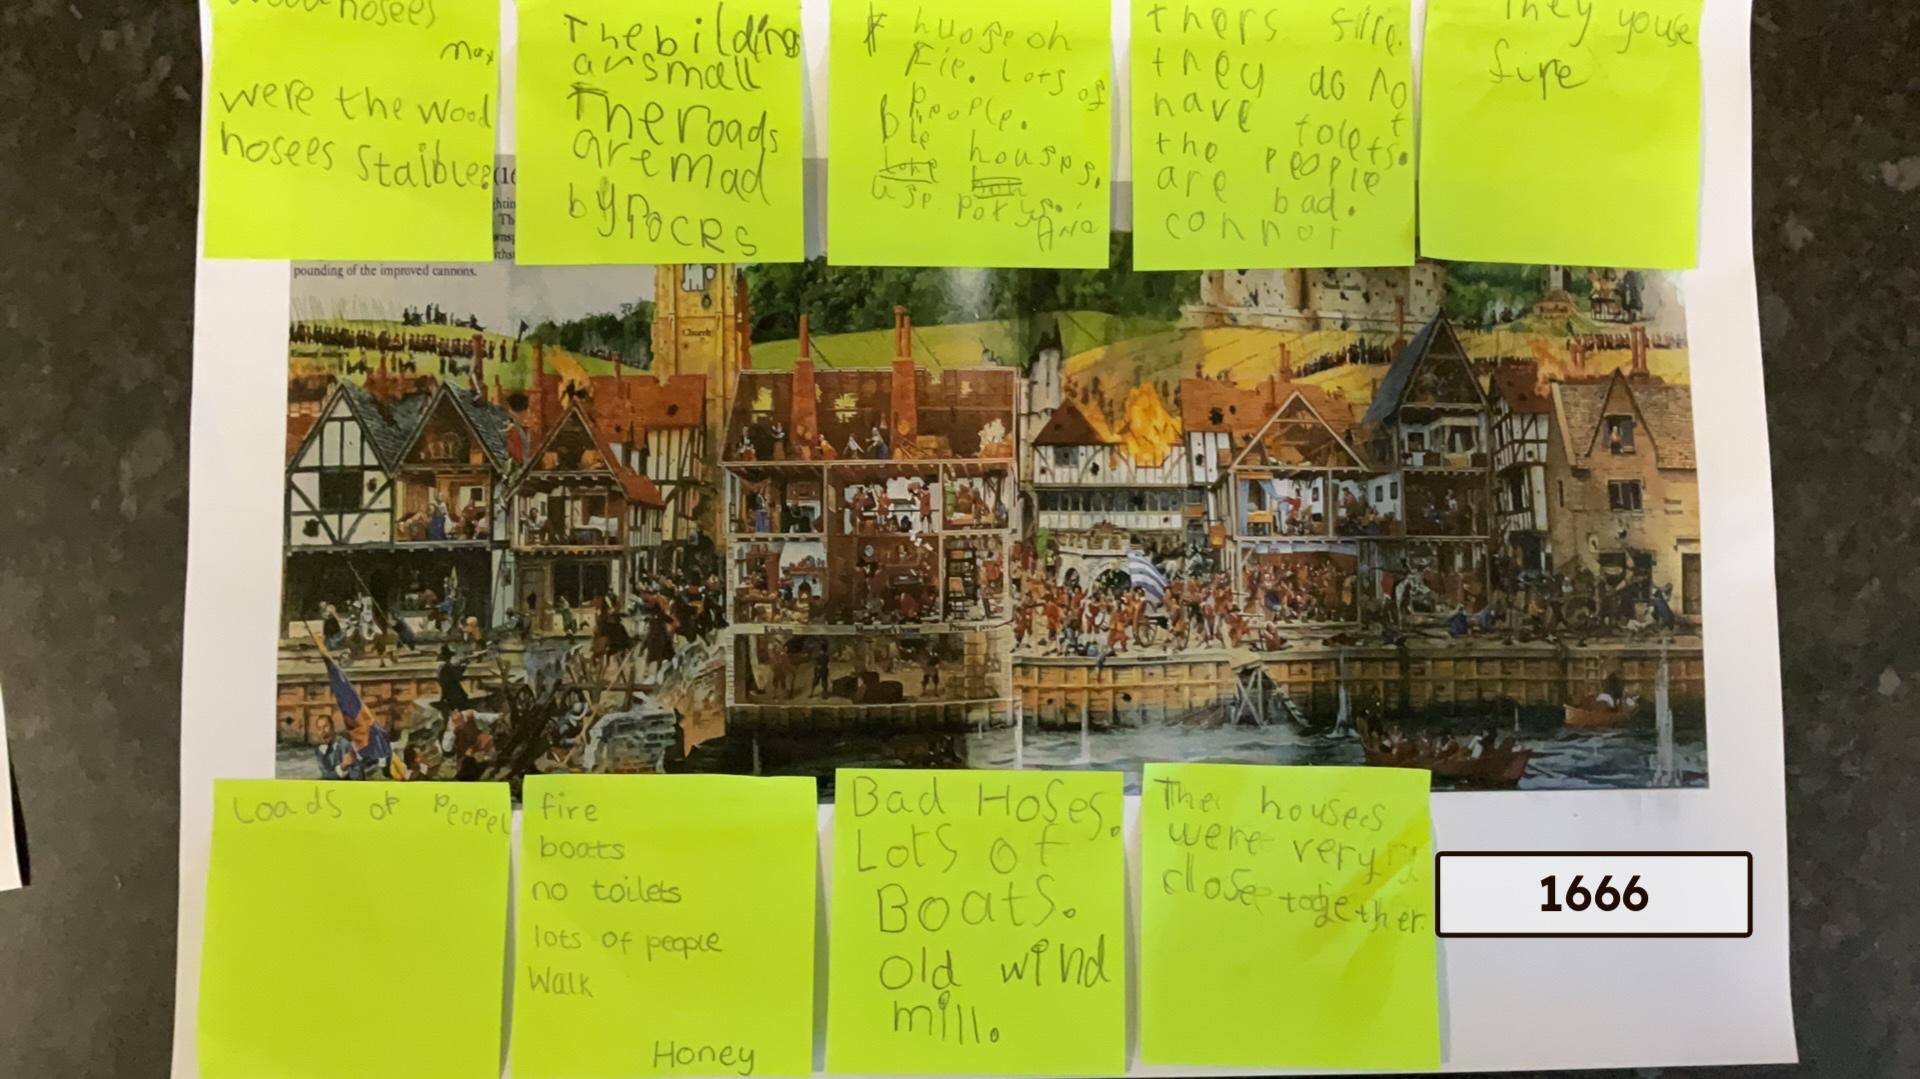 Wood hosees
Max
were the wood
hosees Staibles
The bildings
ar small
The roads
are mad
by Pocrs
huoge oh
Fie. Lots of
People.
Ble houses.
use pot
Ana
thers fire.
they do not
have tolets.
the people
are bad.
connor
They youse
fire
pounding of the improved cannons.
Church
Loads of Peopel
fire
boats
no toilets
lots of people
Walk
Honey
Bad Hoses.
Lots of
Boats.
old wind
mill.
The housees
were very
close together.
1666